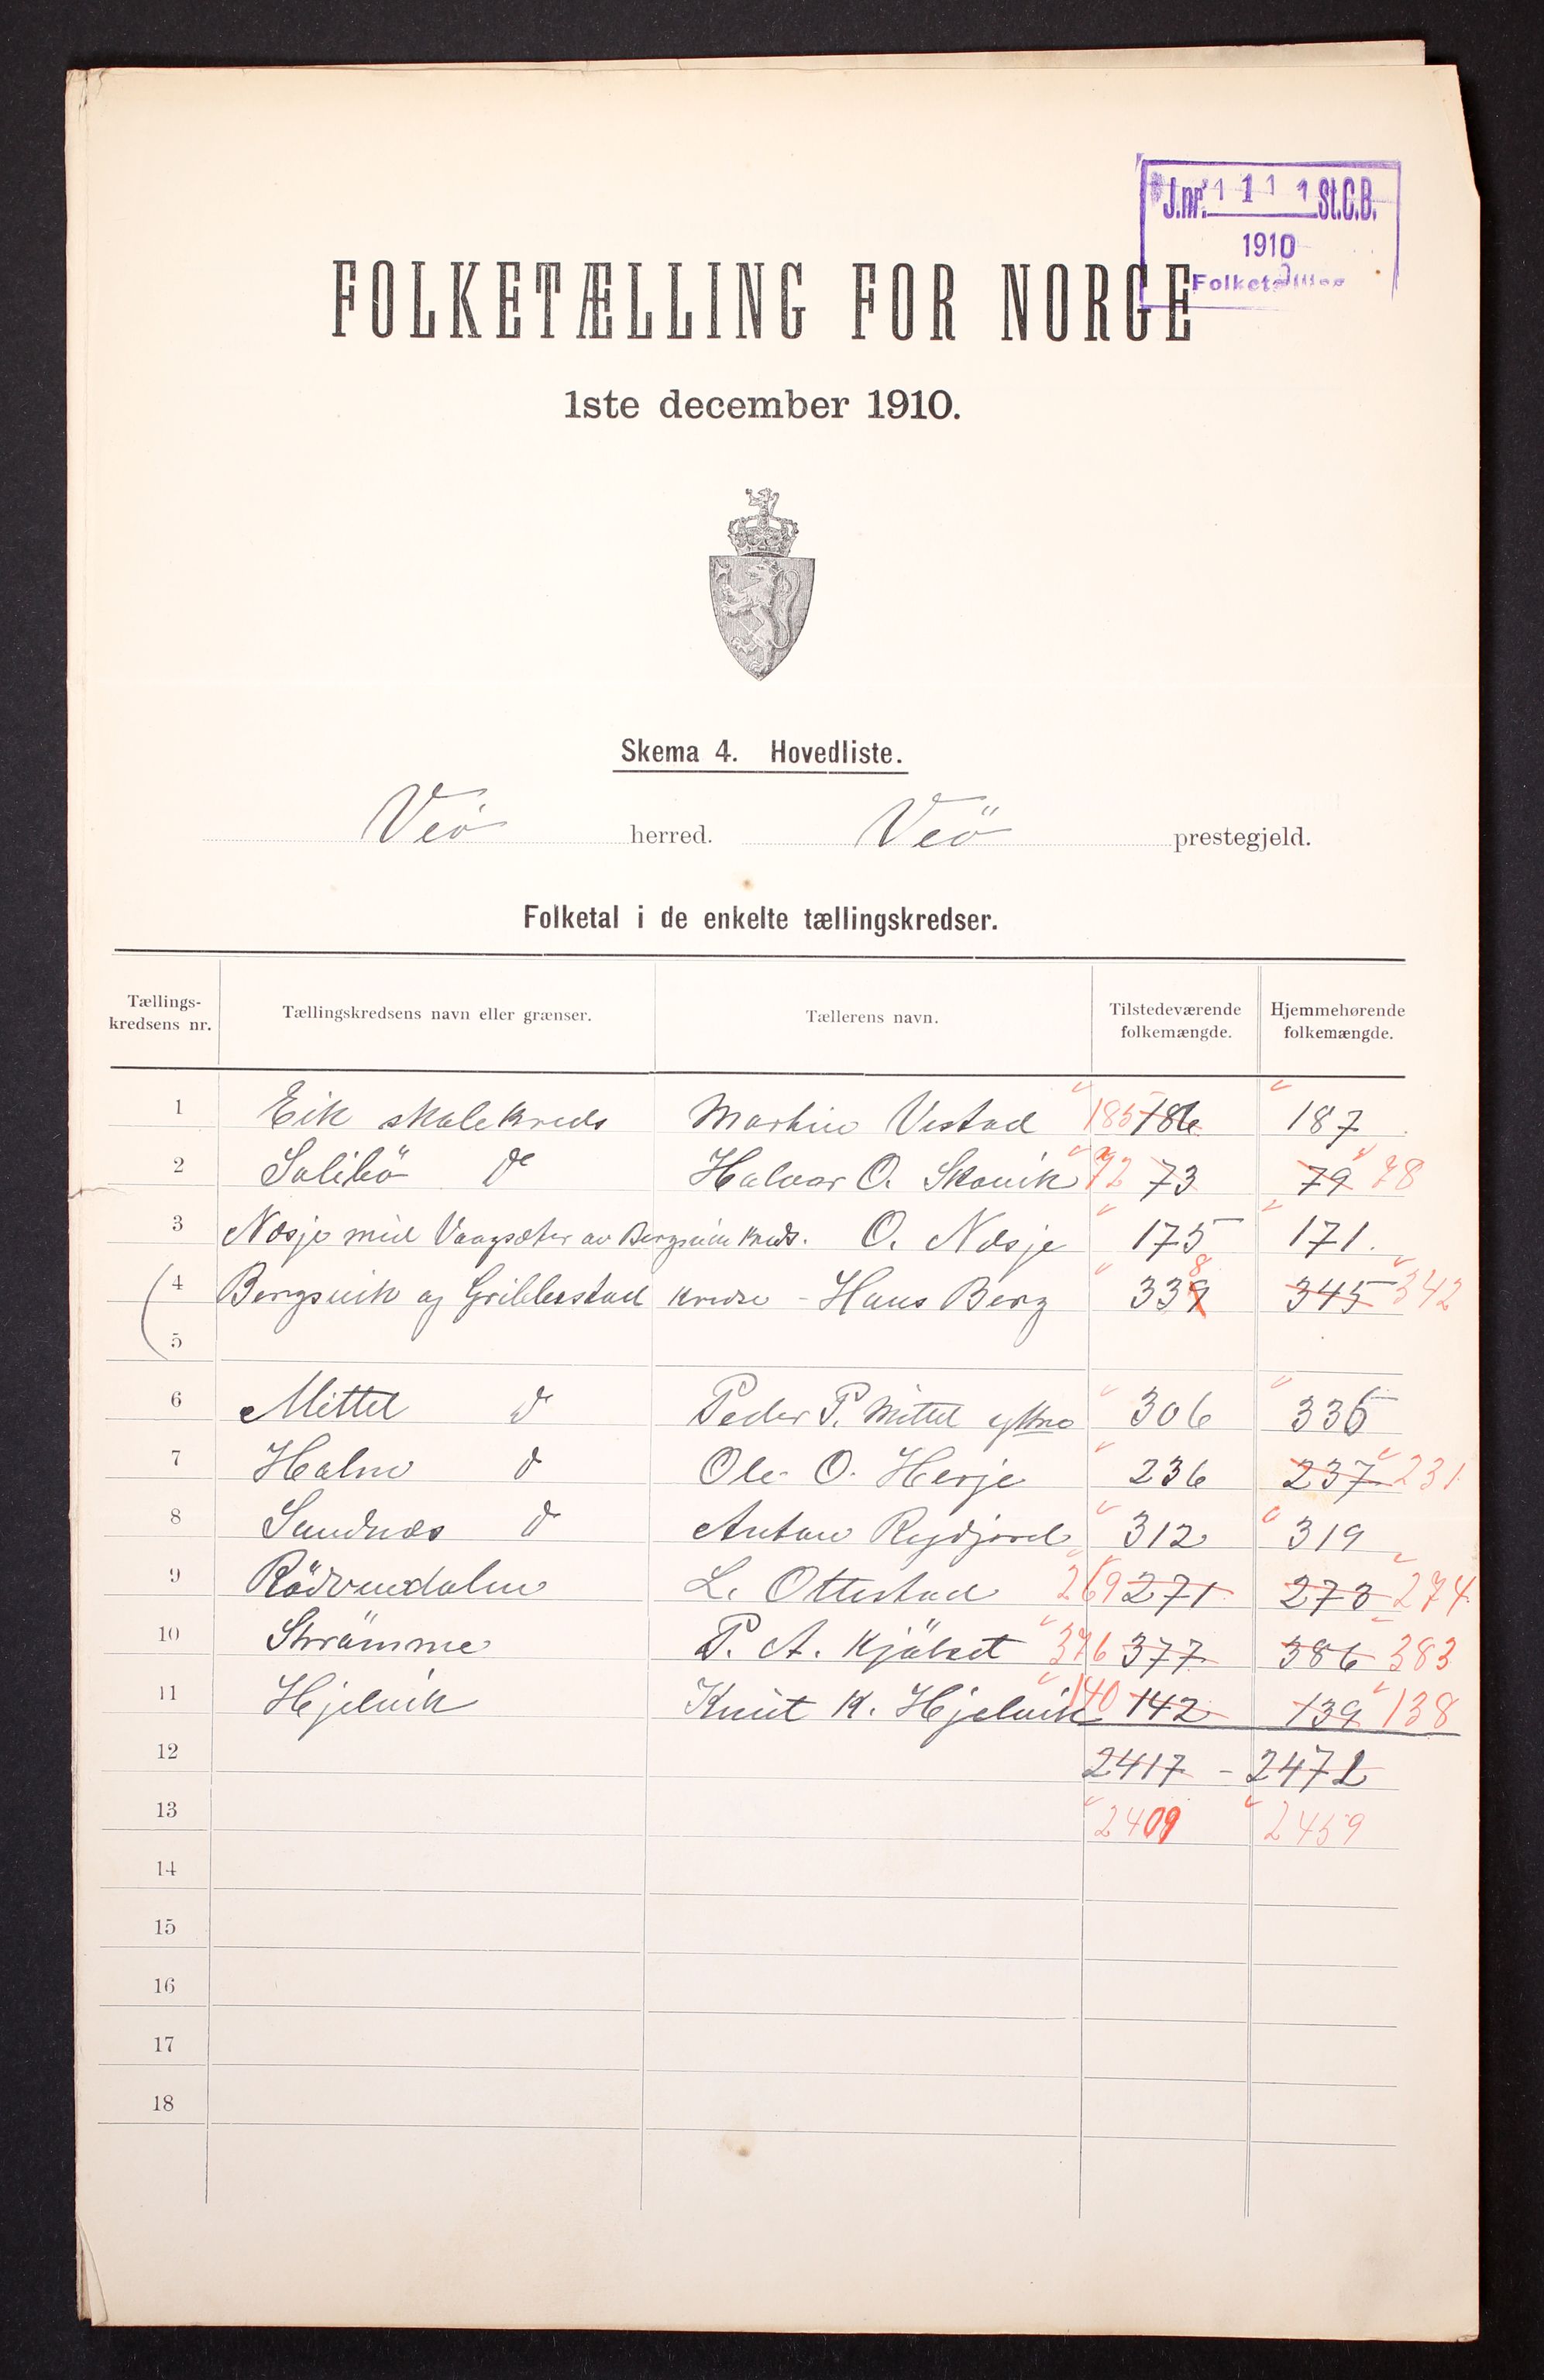 J.nr. 1 1 1 1 St.C.B.
1910
Folketælling
FOLKETÆLLING FOR NORGE
1ste december 1910.
Skema 4. Hovedliste.
Veö herred. Veö prestegjeld.
Folketal i de enkelte tællingskredser.
Tællings-kredsens nr. Tællingskredsens navn eller grænser. Tællerens navn. Tilstedeværende folkemængde. Hjemmehørende folkemængde.
1 Eik skolekreds Martin Vestad 185 186 187
2 Solibö do Halvor O. Skovik 72 73 79 78
3 Næsje med Vaagsæter av Bergsvik kreds. O. Næsje 175 171.
4 Bergsvik og Gribbestad kredse - Hans Berg 339 8 345 342
5
6 Mittet do Peder P. Mittet 306 335
7 Holm do Ole O. Herje 236 237 231
8 Sandnes do Anton Rydjord 312 319
9 Rödvendalen L. Ottestad 269 271 273 274
10 Strömme P. A. Kjölset 376 377 386 383
11 Hjelvik Knut K. Hjelvik 140 142 139 138
12 2417 - 2472
13 2409 2459
14
15
16
17
18